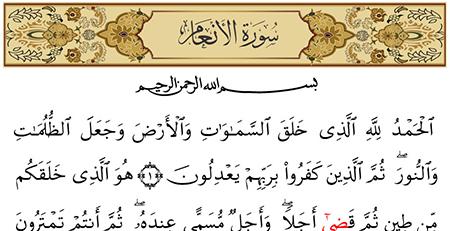 سُورَةُ الأَنْعَامِ
بِسْمِ اللهِ الرَّحْمٰنِ الرَّحِيمِ
الْحَمْدُ لِلَّهِ الَّذِى خَلَقَ السَّمَـٰوَٰتِ وَالْأَرْضَ وَجَعَلَ الظُّلُمَـٰتِ
وَالنُّورَ ۖ ثُمَّ الَّذِينَ كَفَرُوا۟ بِرَبِّهِمْ يَعْدِلُونَ ﴿١﴾ هُوَ الَّذِى خَلَقَكُم
مِّن طِينٍ ثُمَّ قَضَىٰٓ أَجَلًا ۖ وَأَجَلٌ مُّسَمًّى عِندَهُۥ ۖ ثُمَّ أَنتُمْ تَمْتَرُونَ